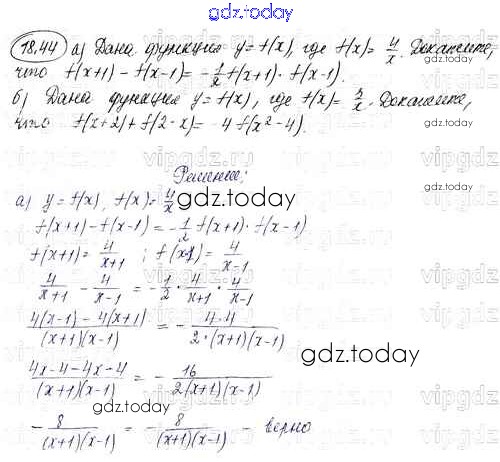 gdz.today
18.44 а) Дана функция y = f(x), где f(x) = 4/x. Докажите,
что f(x+1) - f(x-1) = -1/2 f(x+1) · f(x-1).
б) Дана функция y = f(x), где f(x) = /x. Докажите,
что f(x+2) + f(2-x) = -4 f(x²-4).
Решение:
а) y = f(x), f(x) = 4/x
gdz.today
f(x+1) - f(x-1) = -1/2 f(x+1) · f(x-1)
f(x+1) = 4/(x+1) ; f(x-1) = 4/(x-1)
4/(x+1) - 4/(x-1) = -1/2 · 4/(x+1) · 4/(x-1)
(4(x-1) - 4(x+1))/((x+1)(x-1)) = - (4·4)/(2·(x+1)(x-1))
gdz.today
(4x-4-4x-4)/((x+1)(x-1)) = - 16/(2(x+1)(x-1))
gdz.today
- 8/((x+1)(x-1)) = - 8/((x+1)(x-1)) - верно
gdz.today